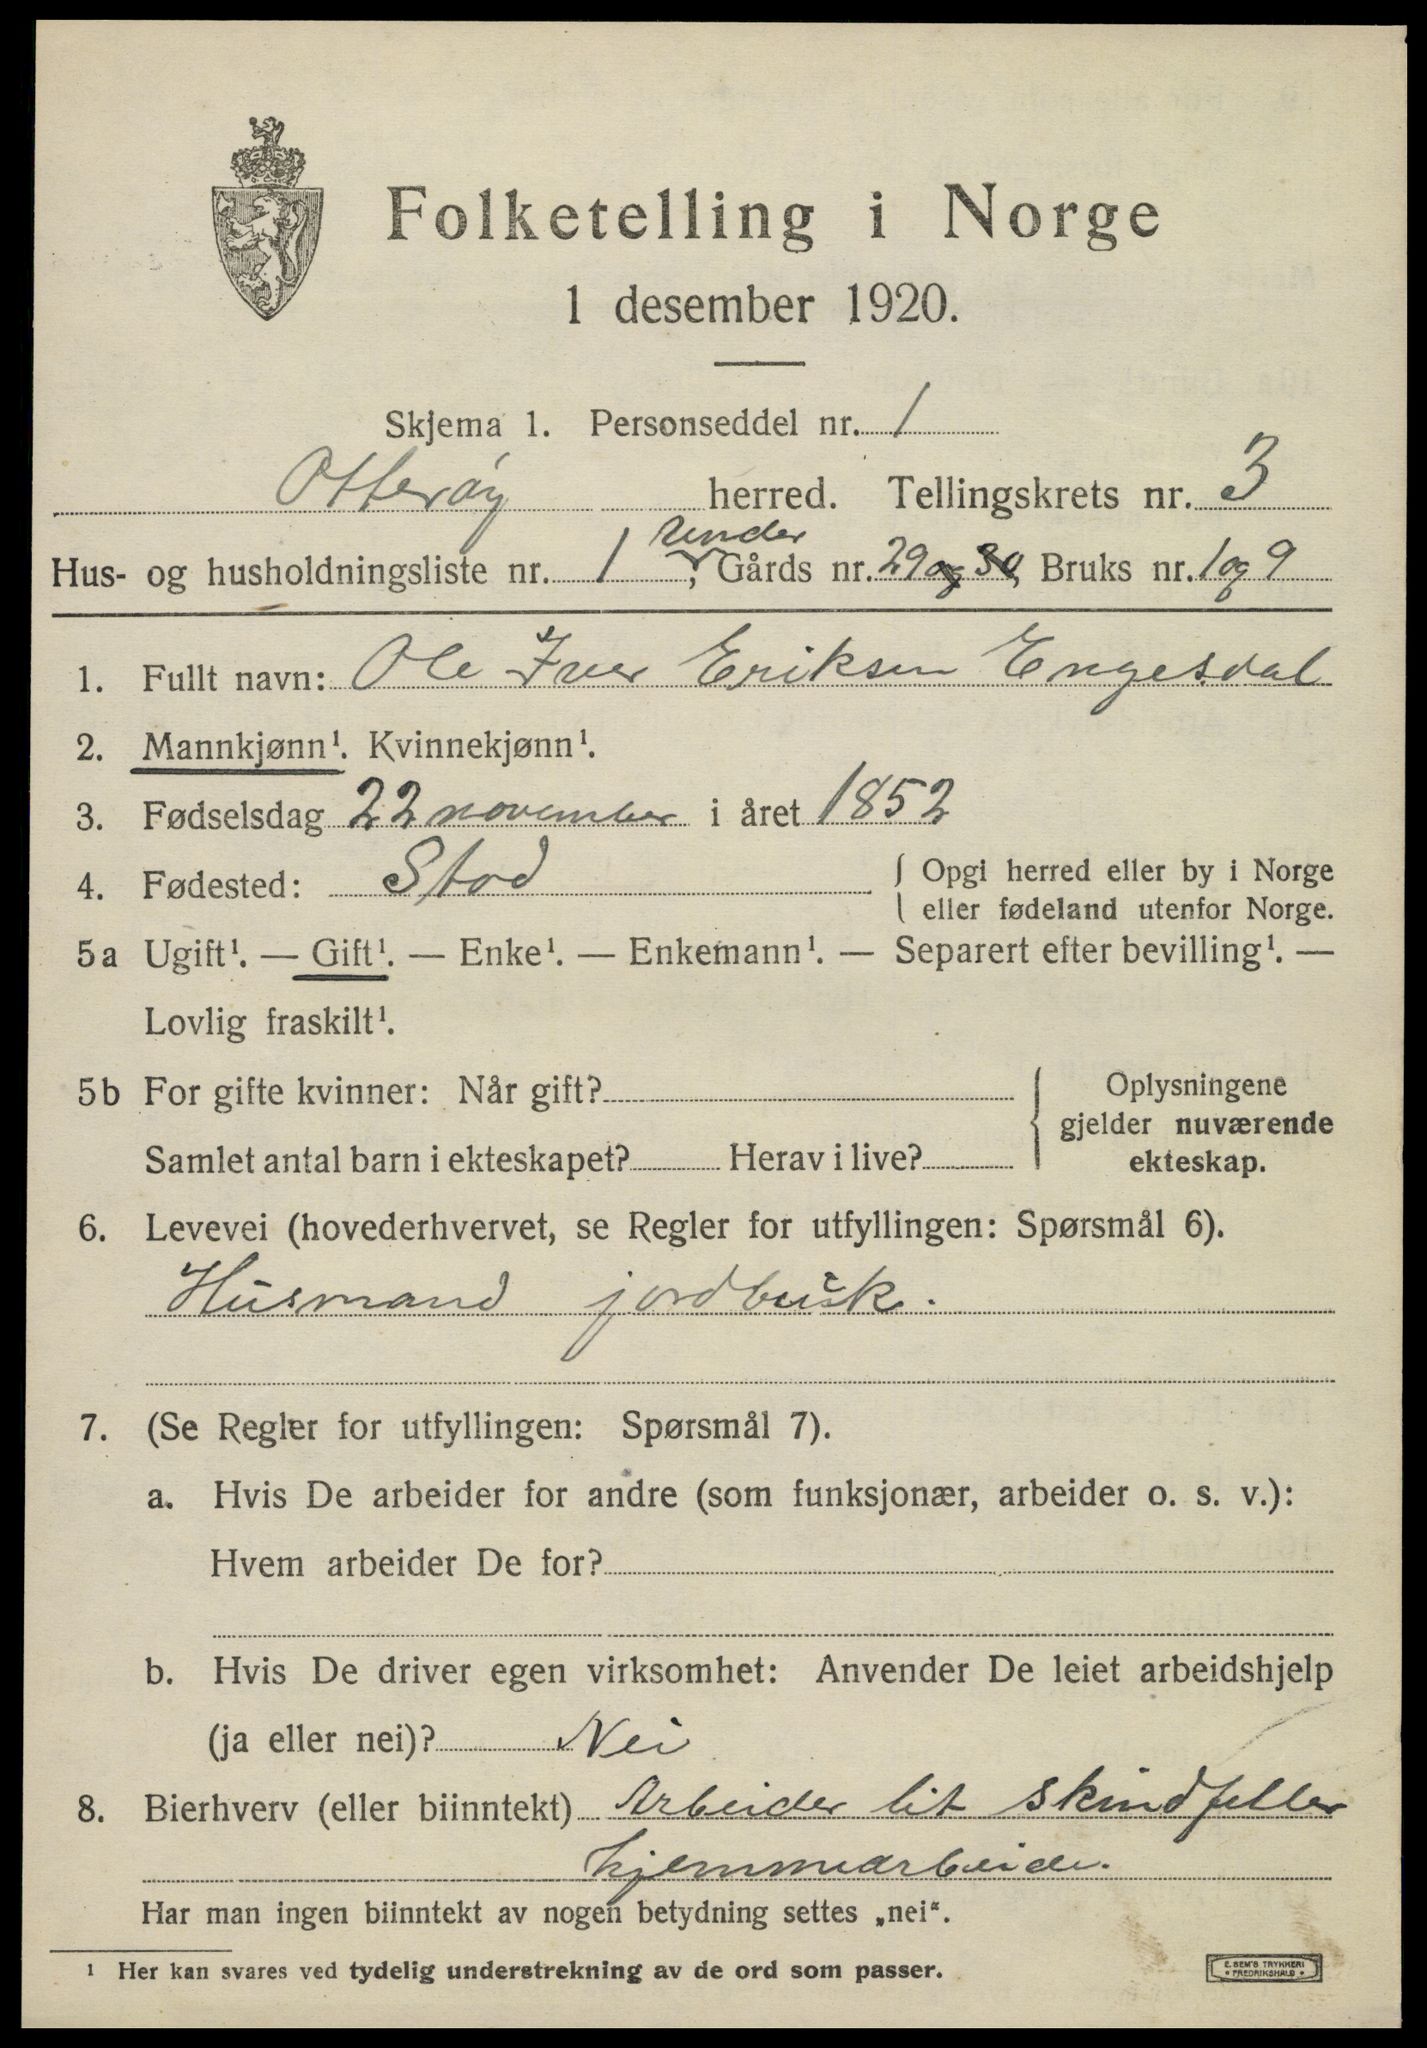 Folketelling i Norge
1 desember 1920.
Skjema 1. Personseddel nr. 1
Otterøy herred. Tellingskrets nr. 3
under
Hus- og husholdningsliste nr. 1, Gårds nr. 29 og 30, Bruks nr. 1 og 9
1. Fullt navn: Ole Iver Eriksen Engesdal
2. Mannkjønn¹. Kvinnekjønn¹.
3. Fødselsdag 22 november i året 1852
4. Fødested: Stod { Opgi herred eller by i Norge
eller fødeland utenfor Norge.
5a Ugift¹. — Gift¹. — Enke¹. — Enkemann¹. — Separert efter bevilling¹. —
Lovlig fraskilt¹.
5b For gifte kvinner: Når gift? { Oplysningene
gjelder nuværende
Samlet antal barn i ekteskapet? Herav i live? ekteskap.
6. Levevei (hovederhvervet, se Regler for utfyllingen: Spørsmål 6).
Husmand jordbruk.
7. (Se Regler for utfyllingen: Spørsmål 7).
a. Hvis De arbeider for andre (som funksjonær, arbeider o. s. v.):
Hvem arbeider De for?
b. Hvis De driver egen virksomhet: Anvender De leiet arbeidshjelp
(ja eller nei)? Nei
8. Bierhverv (eller biinntekt) Arbeider lit skindfeller
hjemmearbeide.
Har man ingen biinntekt av nogen betydning settes „nei“.
¹ Her kan svares ved tydelig understrekning av de ord som passer.
E. SEM'S TRYKKERI
• FREDRIKSHALD •